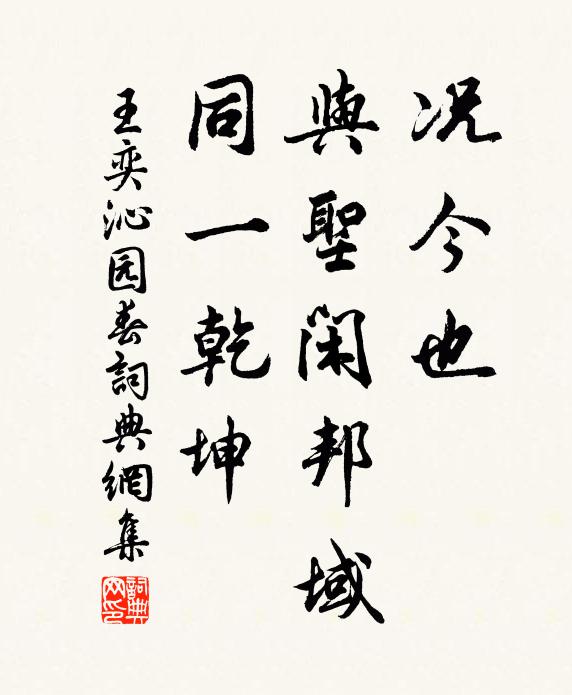 况今也
與聖閑邦域
同一乾坤
王奕沁园春詞典網集
詞典网印